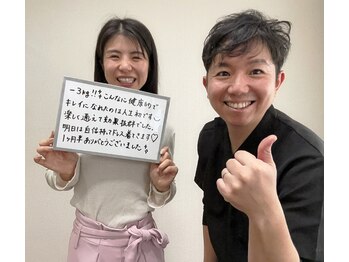 -3kg!!こんなに健康的で
キレイになれたのは人生初です
楽しく通えて効果抜群でした。
明日は自信持ってドレス着てきます♡
1ヶ月半ありがとうございました